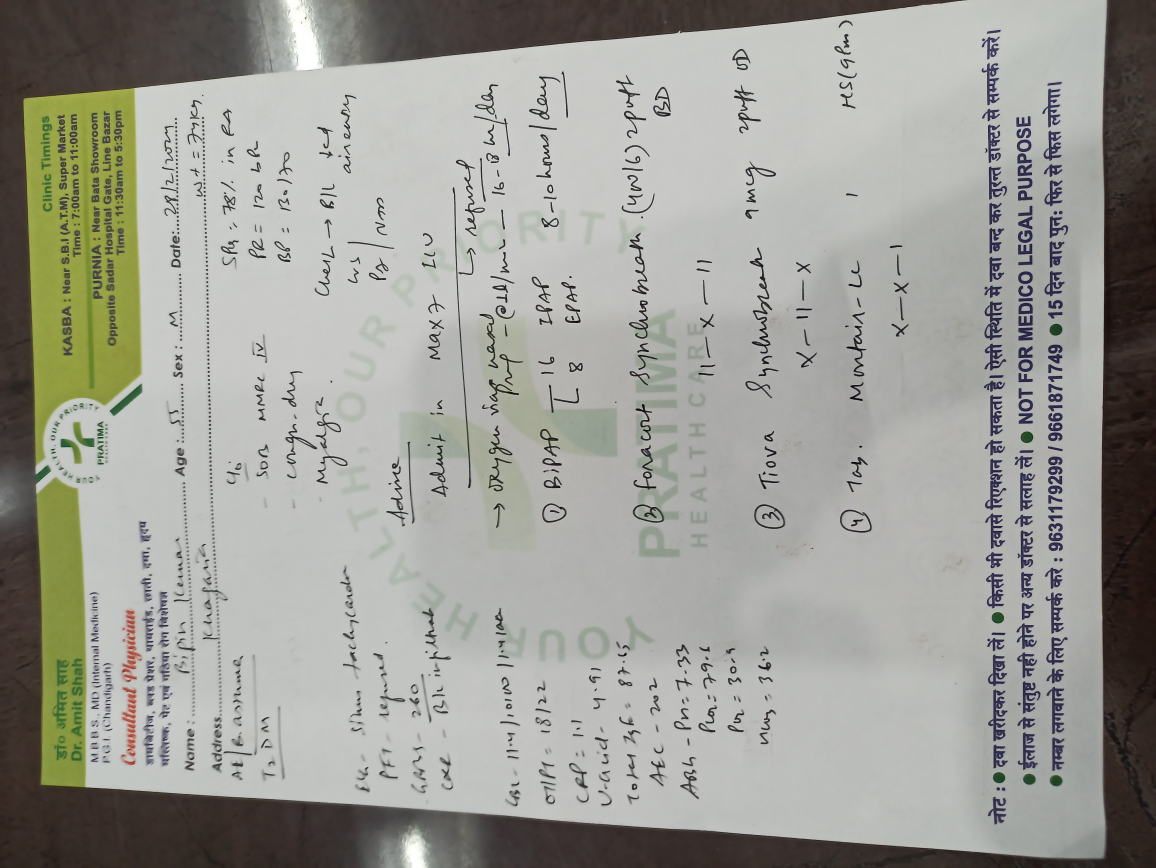 डॉ० अमित साह
Dr. Amit Shah
M.B.B.S., MD (Internal Medicine)
P.G.I. (Chandigarh)
Consultant Physician
डायबिटीज, ब्लड प्रेशर, थायराईड, छाती, दमा, हृदय
मस्तिष्क, पेट एवं गठिया रोग विशेषज्ञ
YOUR HEALTH, OUR PRIORITY
PRATIMA
HEALTHCARE
Clinic Timings
KASBA : Near S.B.I (A.T.M), Super Market
Time : 7:00am to 11:00am
PURNIA : Near Bata Showroom
Opposite Sadar Hospital Gate, Line Bazar
Time : 11:30am to 5:30pm
Name : Bipin Kumar Age : 55 Sex : M Date:
Address Khagaria wt = 74 Kg.
AE/B. asthma
T2DM
C/o
- SOB MMRC IV
- cough - dry
- Myalgia.
SPO2 = 78% in RA
PR = 120 bpm
BP = 130/70
Chest → B/L ↓ed air entry
CVS
P/A / NM
ECG - Sinus tachycardia
PFT - refused.
GRBS - 260
CXR - B/L infiltrates
Advice
Admit in Max 7 ICU
↳ refused
→ oxygen via nasal prong - @2l/min — 16-18 hr/day
① BiPAP 16 IPAP
8 EPAP. 8-10 hours/day
② Foracort Synchrobreath (4M/6) 2puff BD
11 — x — 11
③ Tiova Synchrobreath 9mcg 2puff OD
x — 11 — x
④ Tab. Montair-LC 1 HS (9pm)
x — x — 1
OT/PT = 18/22
CRP = 1.1
U-acid - 4.91
Total IgE = 87.15
AEC - 202
ABG - PH = 7.33
PCO2 = 79.6
PO2 = 30.9
HCO3 = 36.2
YOUR HEALTH, YOUR PRIORITY
PRATIMA
HEALTHCARE
नोट : ● दवा खरीदकर दिखा लें। ● किसी भी दवासे रिएक्शन हो सकता है। ऐसी स्थिति में दवा बन्द कर तुरन्त डॉक्टर से सम्पर्क करें।
● ईलाज से संतुष्ट नही होने पर अन्य डॉक्टर से सलाह लें। ● NOT FOR MEDICO LEGAL PURPOSE
● नम्बर लगवाने के लिए सम्पर्क करे : 9631179299 / 9661871749 ● 15 दिन बाद पुनः फिर से फिस लगेगा।